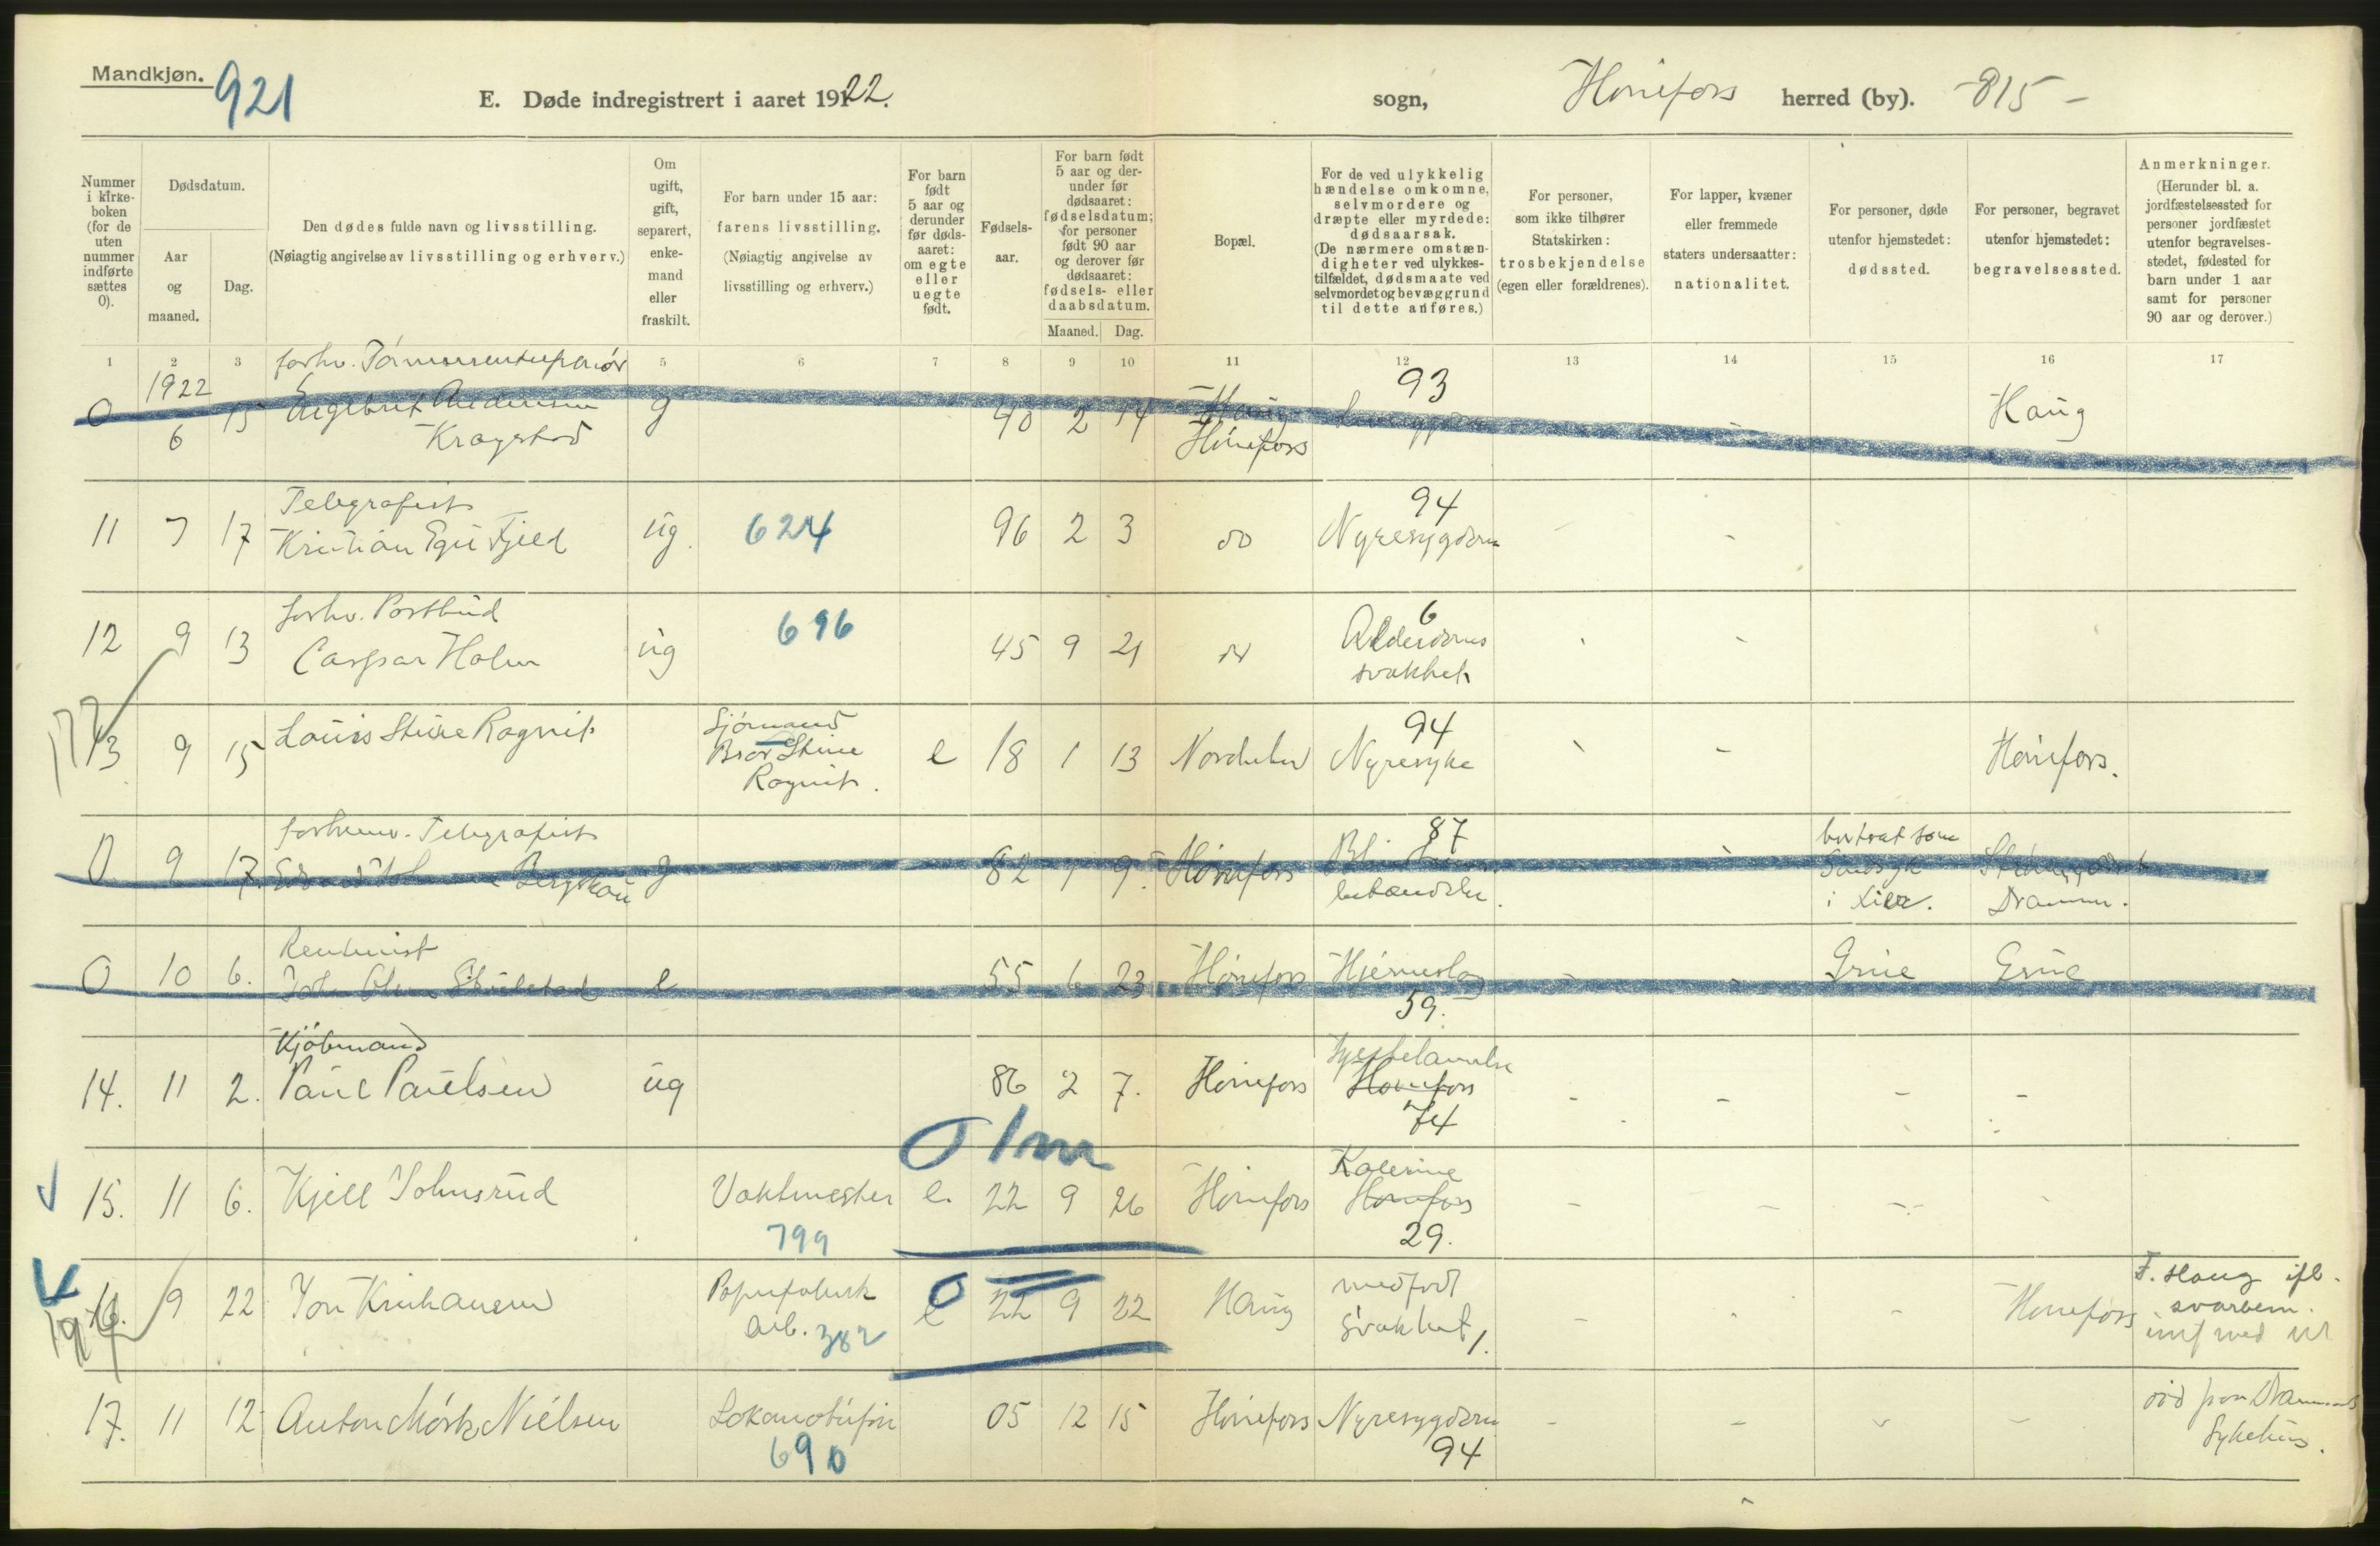 Mandkjøn.
921
E. Døde indregistrert i aaret 1922.
sogn,
Hønefors herred (by). -815-
Nummer i kirke-boken (for de uten nummer indførte sættes 0).
Dødsdatum.
Aar og maaned.
Dag.
Den dødes fulde navn og livsstilling.
(Nøiagtig angivelse av livsstilling og erhverv.)
Om ugift, gift, separert, enke-mand eller fraskilt.
For barn under 15 aar:
farens livsstilling.
(Nøiagtig angivelse av livsstilling og erhverv.)
For barn født 5 aar og derunder før døds-aaret: om egte eller uegte født.
Fødsels-aar.
For barn født 5 aar og der-under før dødsaaret: fødselsdatum; for personer født 90 aar og derover før dødsaaret: fødsels- eller daabsdatum.
Maaned. Dag.
Bopæl.
For de ved ulykkelig hændelse omkomne, selvmordere og dræpte eller myrdede: dødsaarsak.
(De nærmere omstæn-digheter ved ulykkes-tilfældet, dødsmaate ved selvmordet og bevæggrund til dette anføres.)
For personer, som ikke tilhører Statskirken: trosbekjendelse (egen eller forældrenes).
For lapper, kvæner eller fremmede staters undersaatter: nationalitet.
For personer, døde utenfor hjemstedet: dødssted.
For personer, begravet utenfor hjemstedet: begravelsessted.
Anmerkninger.
(Herunder bl. a. jordfæstelsessted for personer jordfæstet utenfor begravelses-stedet, fødested for barn under 1 aar samt for personer 90 aar og derover.)
1 2 3 5 6 7 8 9 10 11 12 13 14 15 16 17
1922 forhv. 93
0 6 15 Engebret Andersen g 40 2 14 Haug Haug
Kragstad Hønefors
Telegrafist 94
11 7 17 Kristian Egil Fjeld ug. 624 96 2 3 do Nyresygdom - -
forhv. Postbud 6
12 9 13 Caspar Holm ug 696 45 9 21 do Alderdoms
svakhet
Sjømand 94
13 9 15 Louis Stene Ragnit Bror Stene e 18 1 13 Nyresyke Hønefors.
Ragnit.
forhenv. Telegrafist 87
0 9 17 Bergskau g 82 9 Hønefors
i Lier. Drammen.
Rentenist
0 10 6. e 55 6 23 Hønefors Hjerneslag Grue Grue
59.
Kjøbmand
14. 11 2. Paul Paulsen ug 86 2 7. Hønefors Hønefors - - - -
74
Kolerine
15. 11 6. Kjell Johnsrud Vaktmester e. 22 9 26 Hønefors Hønefors
799 29.
16. 9 22 Jon Kristiansen Papirfabrik e 22 9 22 Haug medfødt Hønefors F. Haug ifl.
arb. 382 svakhet 1. svarbem.
17. 11 12 Anton Mørk Nielsen Lokomotivfør 05 12 15 Hønefors Nyresygdom død paa Drammens
690 94 Sykehus.